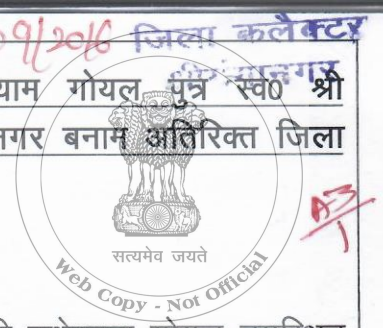 09/2016 जिला कलैक्टर
श्रीगंगानगर
याम गोयल पुत्र स्व0 श्री
नगर बनाम अतिरिक्त जिला
A3/1
सत्यमेव जयते
Web Copy - Not Official